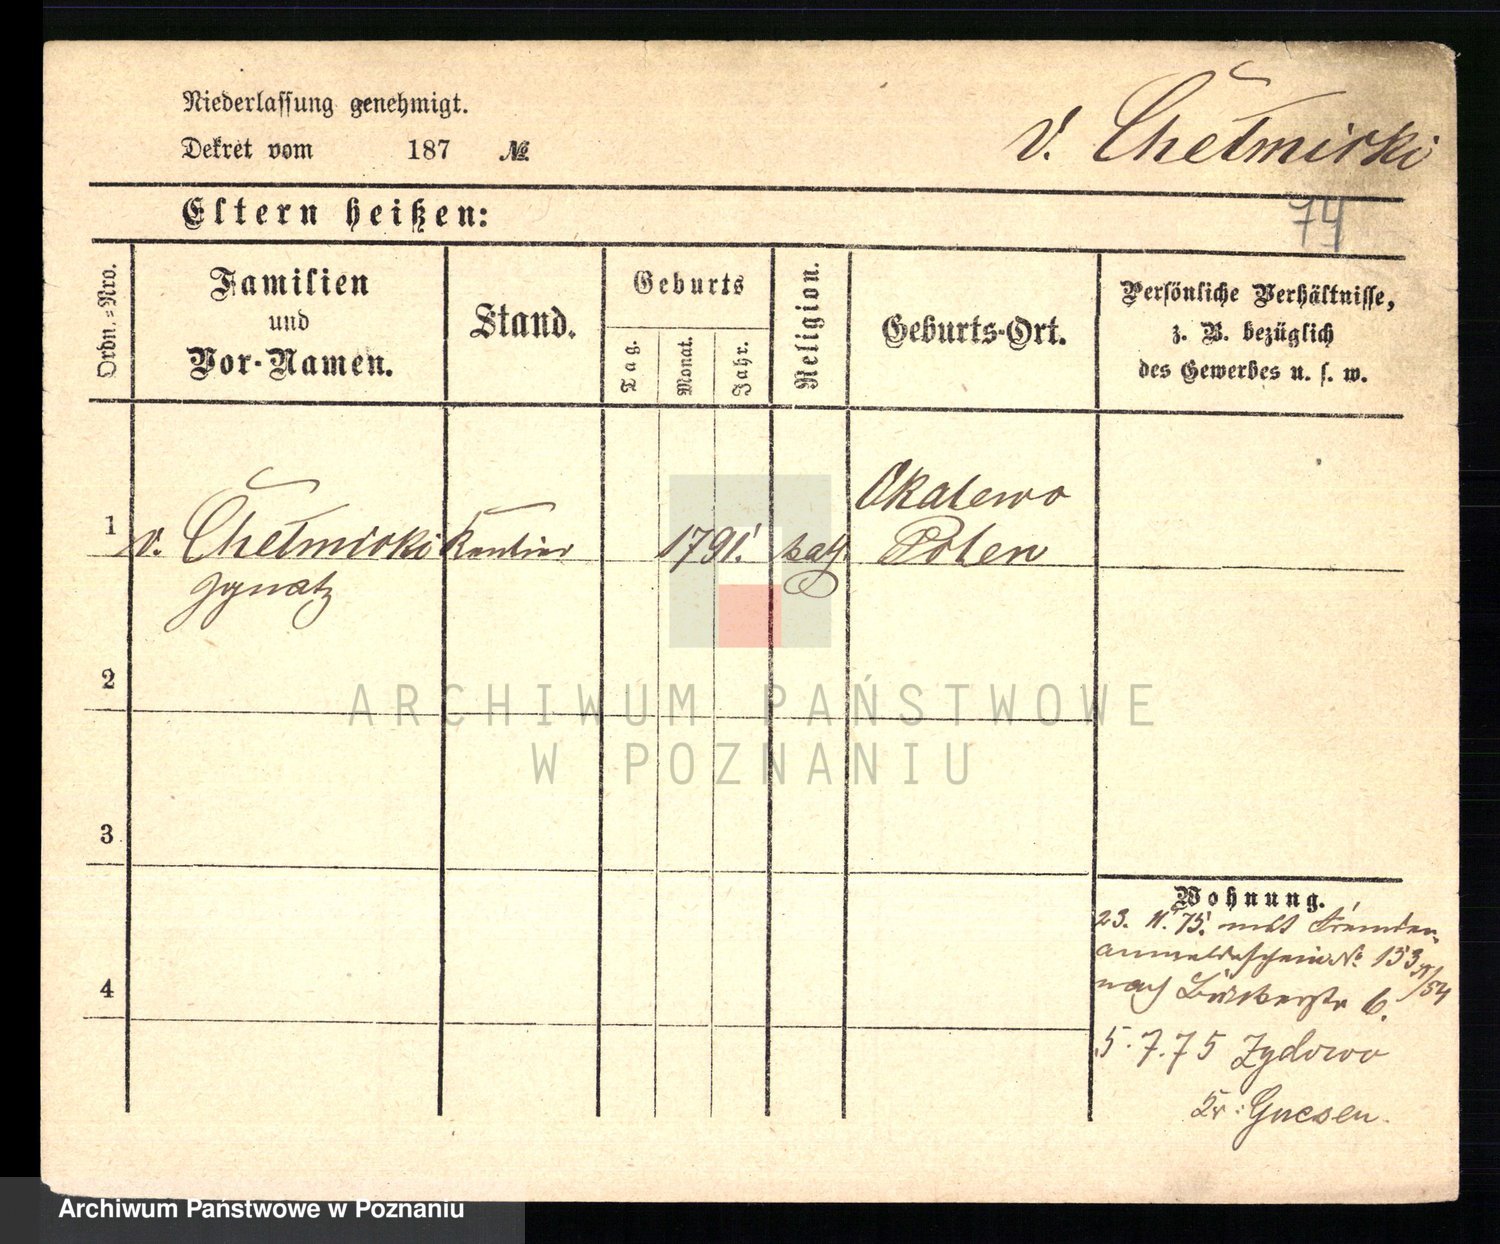 Niederlassung genehmigt.
Dekret vom 187 №
v. Chełmicki
74
Eltern heißen:
Ordn.-Nro.
Familien
und
Vor-Namen.
Stand.
Geburts
Tag.
Monat.
Jahr.
Religion.
Geburts-Ort.
Persönliche Verhältnisse,
z. B. bezüglich
des Gewerbes u. s. w.
1
v. Chełmicki
Ignatz
Rentier
1791.
kath.
Okalewo
Polen
2
ARCHIWUM PAŃSTWOWE
W POZNANIU
3
4
Wohnung.
23. 75. mit Fremden-
anmeldeschein № 153
nach 6.
5.7.75 Zydowo
Kr: Gnesen.
Archiwum Państwowe w Poznaniu